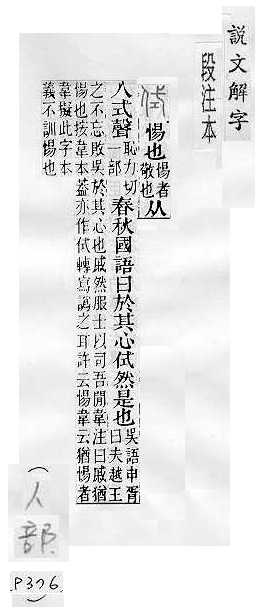 說文解字
段注本
侙 惕也惕者敬也从
人式聲恥力切一部春秋國語曰於其心侙然是也吳語申胥曰夫越王
之不忘敗吳於其心也戚然服士以司吾閒韋注曰戚猶
惕也按韋本葢亦作侙轉寫譌之耳許云惕韋云猶惕者
韋擬此字本
義不訓惕也
(人部)
P376